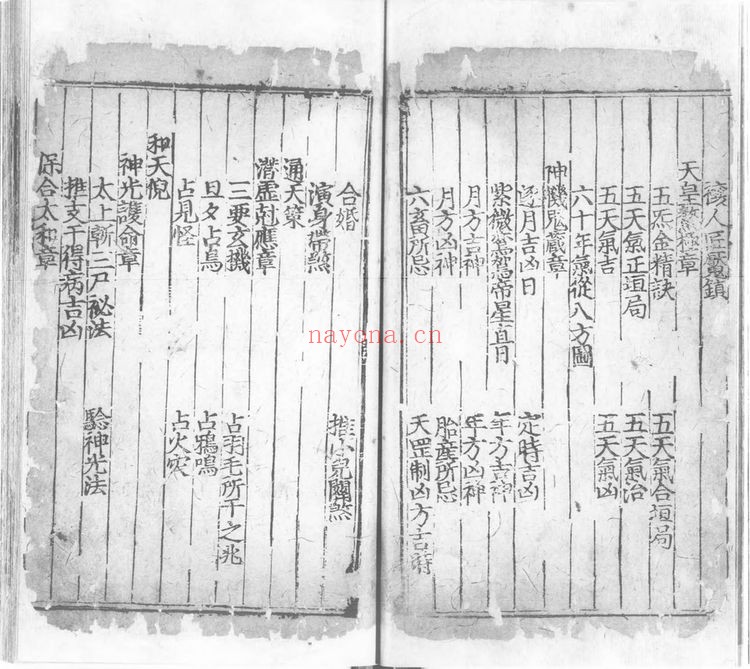 禳人匠魘鎮
天皇鰲極章
五炁金精訣　五天氣合垣局
五天氣正垣局　五天氣治
五天氣吉　五天氣凶
六十年氣從八方圖
神機鬼藏章
逐月吉凶日　定時吉凶
紫微鸞駕帝星直日　年方吉神
月方吉神　年方凶神
月方凶神　胎産所忌
六畜所忌　天罡制凶方吉
合婚　推小兒關煞
演身帶煞
通天策
潛虛尅應章
三要玄機　占羽毛所干之兆
旦夕占烏　占鴉鳴
占見怪　占火灾
和天倪
神光護命章
太上斬三尸祕法　驗神光法
推支干得病吉凶
保合太和章
nayona.cn